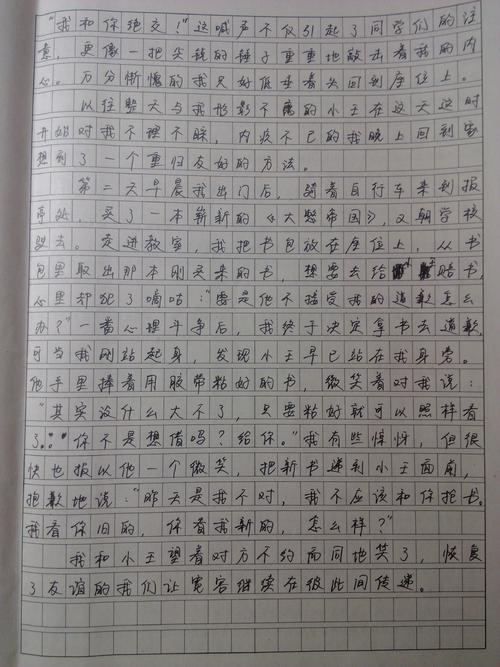 "我和你绝交!"这喊声不仅引起了同学们的注
意,更像一把尖锐的锤子重重地敲击着我的内
心。万分惭愧的我只好低垂着头回到座位上。
以往整天与我形影不离的小王在这天这时
开始对我不理不睬,内疚不已的我晚上回到家
想到了一个重归友好的方法。
第二天早晨我出门后,骑着自行车来到报
亭处,买了一本崭新的《大憨帝国》,又朝学校
驶去。走进教室,我把书包放在座位上,从书
包里取出那本刚买来的书,想要去给赔书,
心里却犯了嘀咕:"要是他不接受我的道歉怎么
办?"一番心理斗争后,我终于决定拿书去道歉,
可当我刚站起身,发现小王早已站在我身旁。
他手里捧着用胶带粘好的书,微笑着对我说:
"其实没什么大不了,只要粘好就可以照样看
了。""你不是想借吗?给你。"我有些惊讶,但很
快也报以他一个微笑,把新书递到小王面前,
抱歉地说:"昨天是我不对,我不应该和你抢书。
我看你旧的,你看我新的,怎么样?"
我和小王望着对方不约而同地笑了,恢复
了友谊的我们让宽容继续在彼此间传递。